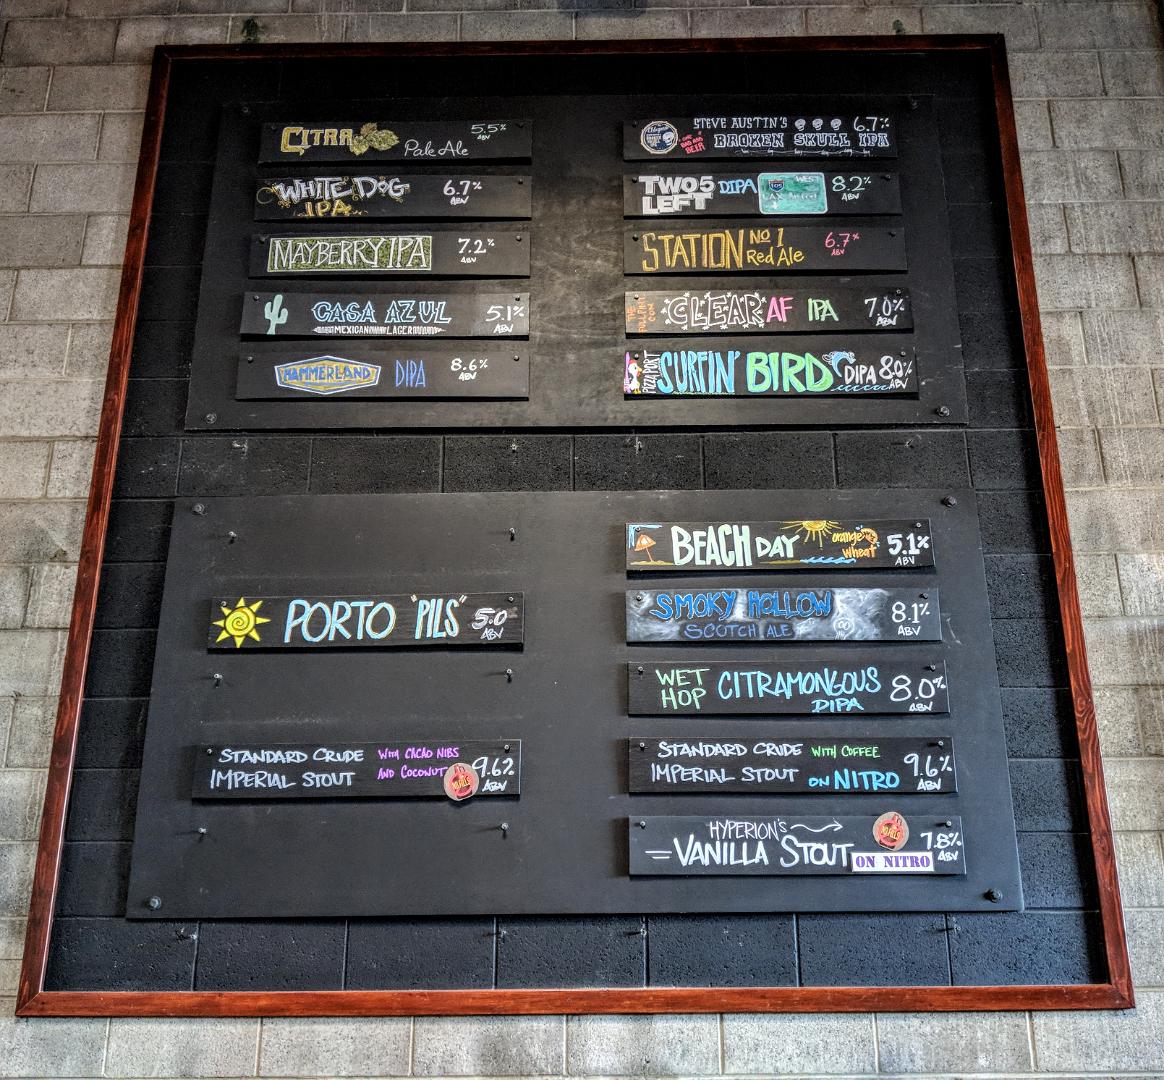 CITRA 5.5%
Pale Ale
WHITE DOG 6.7%
IPA ABV
MAYBERRY IPA 7.2%
ABV
CASA AZUL 5.1%
MEXICAN LAGER ABV
HAMMERLAND DIPA 8.6%
ABV
STEVE AUSTIN'S 6.7%
BROKEN SKULL IPA
TWO 5 DIPA WEST 8.2%
LEFT 105 ABV
STATION No 1 6.7%
Red Ale ABV
CLEAR AF IPA 7.0%
ABV
PIZZA PORT SURFIN' BIRD DIPA 8.0%
ABV
PORTO "PILS" 5.0
ABV
STANDARD CRUDE WITH CACAO NIBS 9.6%
IMPERIAL STOUT AND COCONUT ABV
BEACH DAY orange 5.1%
wheat ABV
SMOKY HOLLOW 8.1%
SCOTCH ALE ABV
WET CITRAMONGOUS 8.0%
HOP DIPA ABV
STANDARD CRUDE WITH COFFEE 9.6%
IMPERIAL STOUT ON NITRO ABV
HYPERION'S 7.8%
VANILLA STOUT ABV
ON NITRO